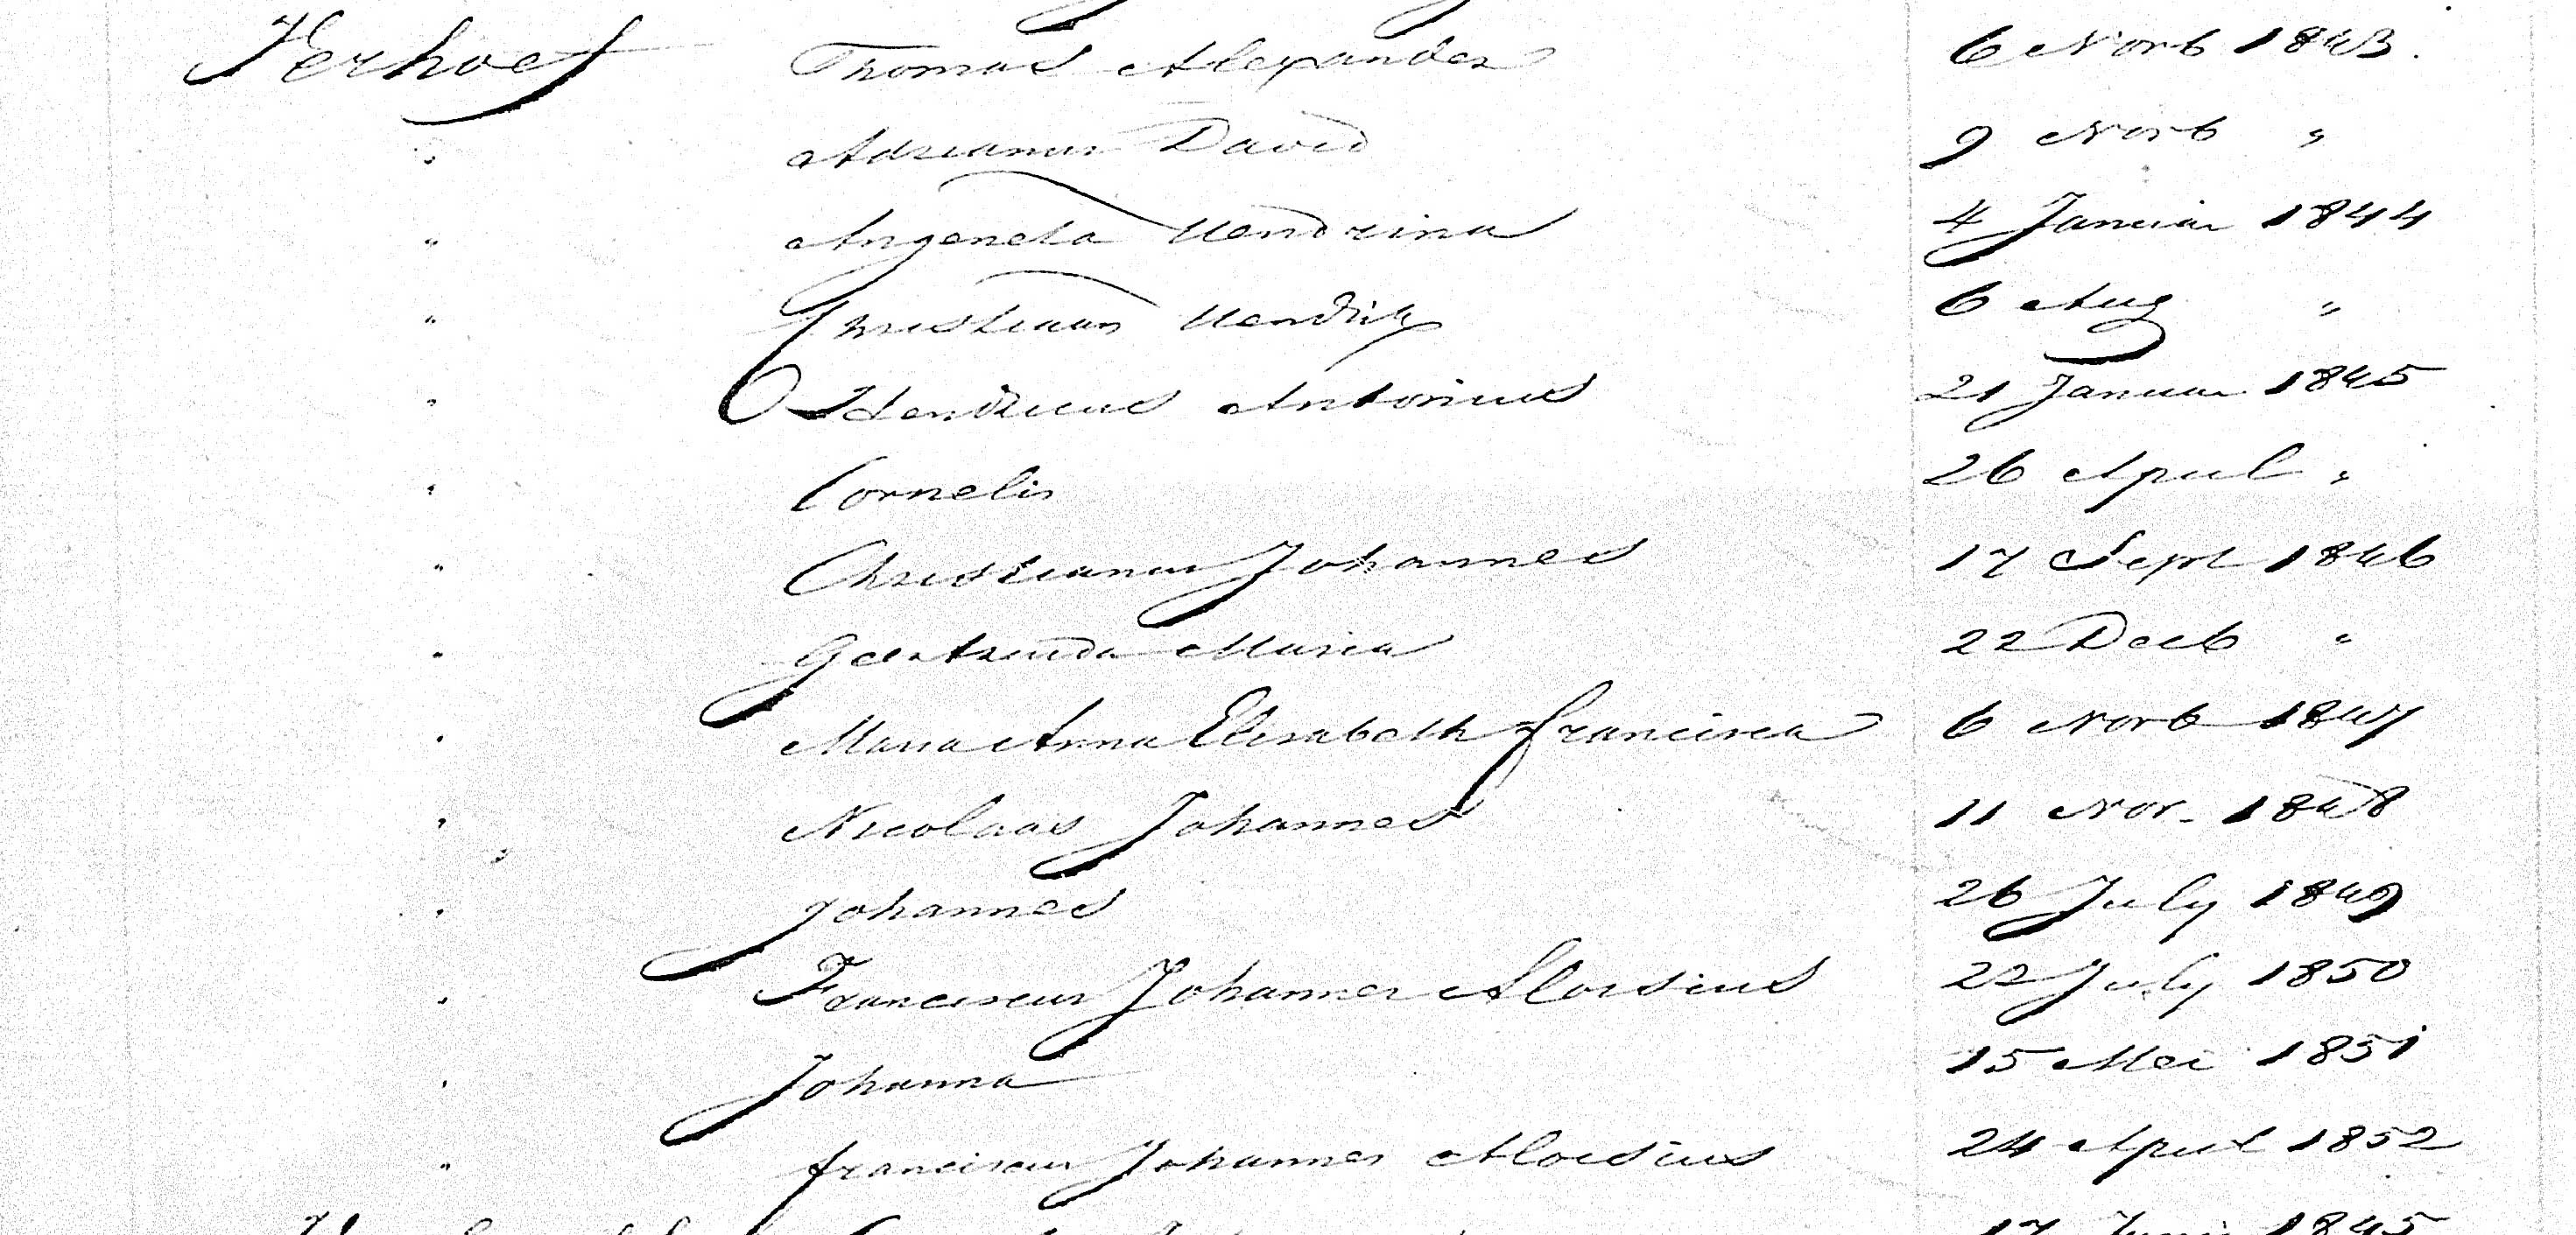 Verhoef Thomas Alexander 6 Novb 1843.
" Adrianus David 9 Novb "
" Angeneta Hendrina 4 Januar 1844
" Christiaan Hendrik 6 Aug "
" Hendricus Antonius 21 Januar 1845
" Cornelis 26 April "
" Christianus Johannes 17 Sept 1846
" Geertruida Maria 22 Decb "
" Maria Anna Elisabeth Francisca 6 Novb 1847
" Nicolaas Johannes 11 Nov. 1848
" Johannes 26 July 1849
" Franciscus Johannes Aloisius 22 July 1850
" Johanna 15 Mei 1851
" franciscus Johannes Aloisius 24 April 1852
17 Juni 1845